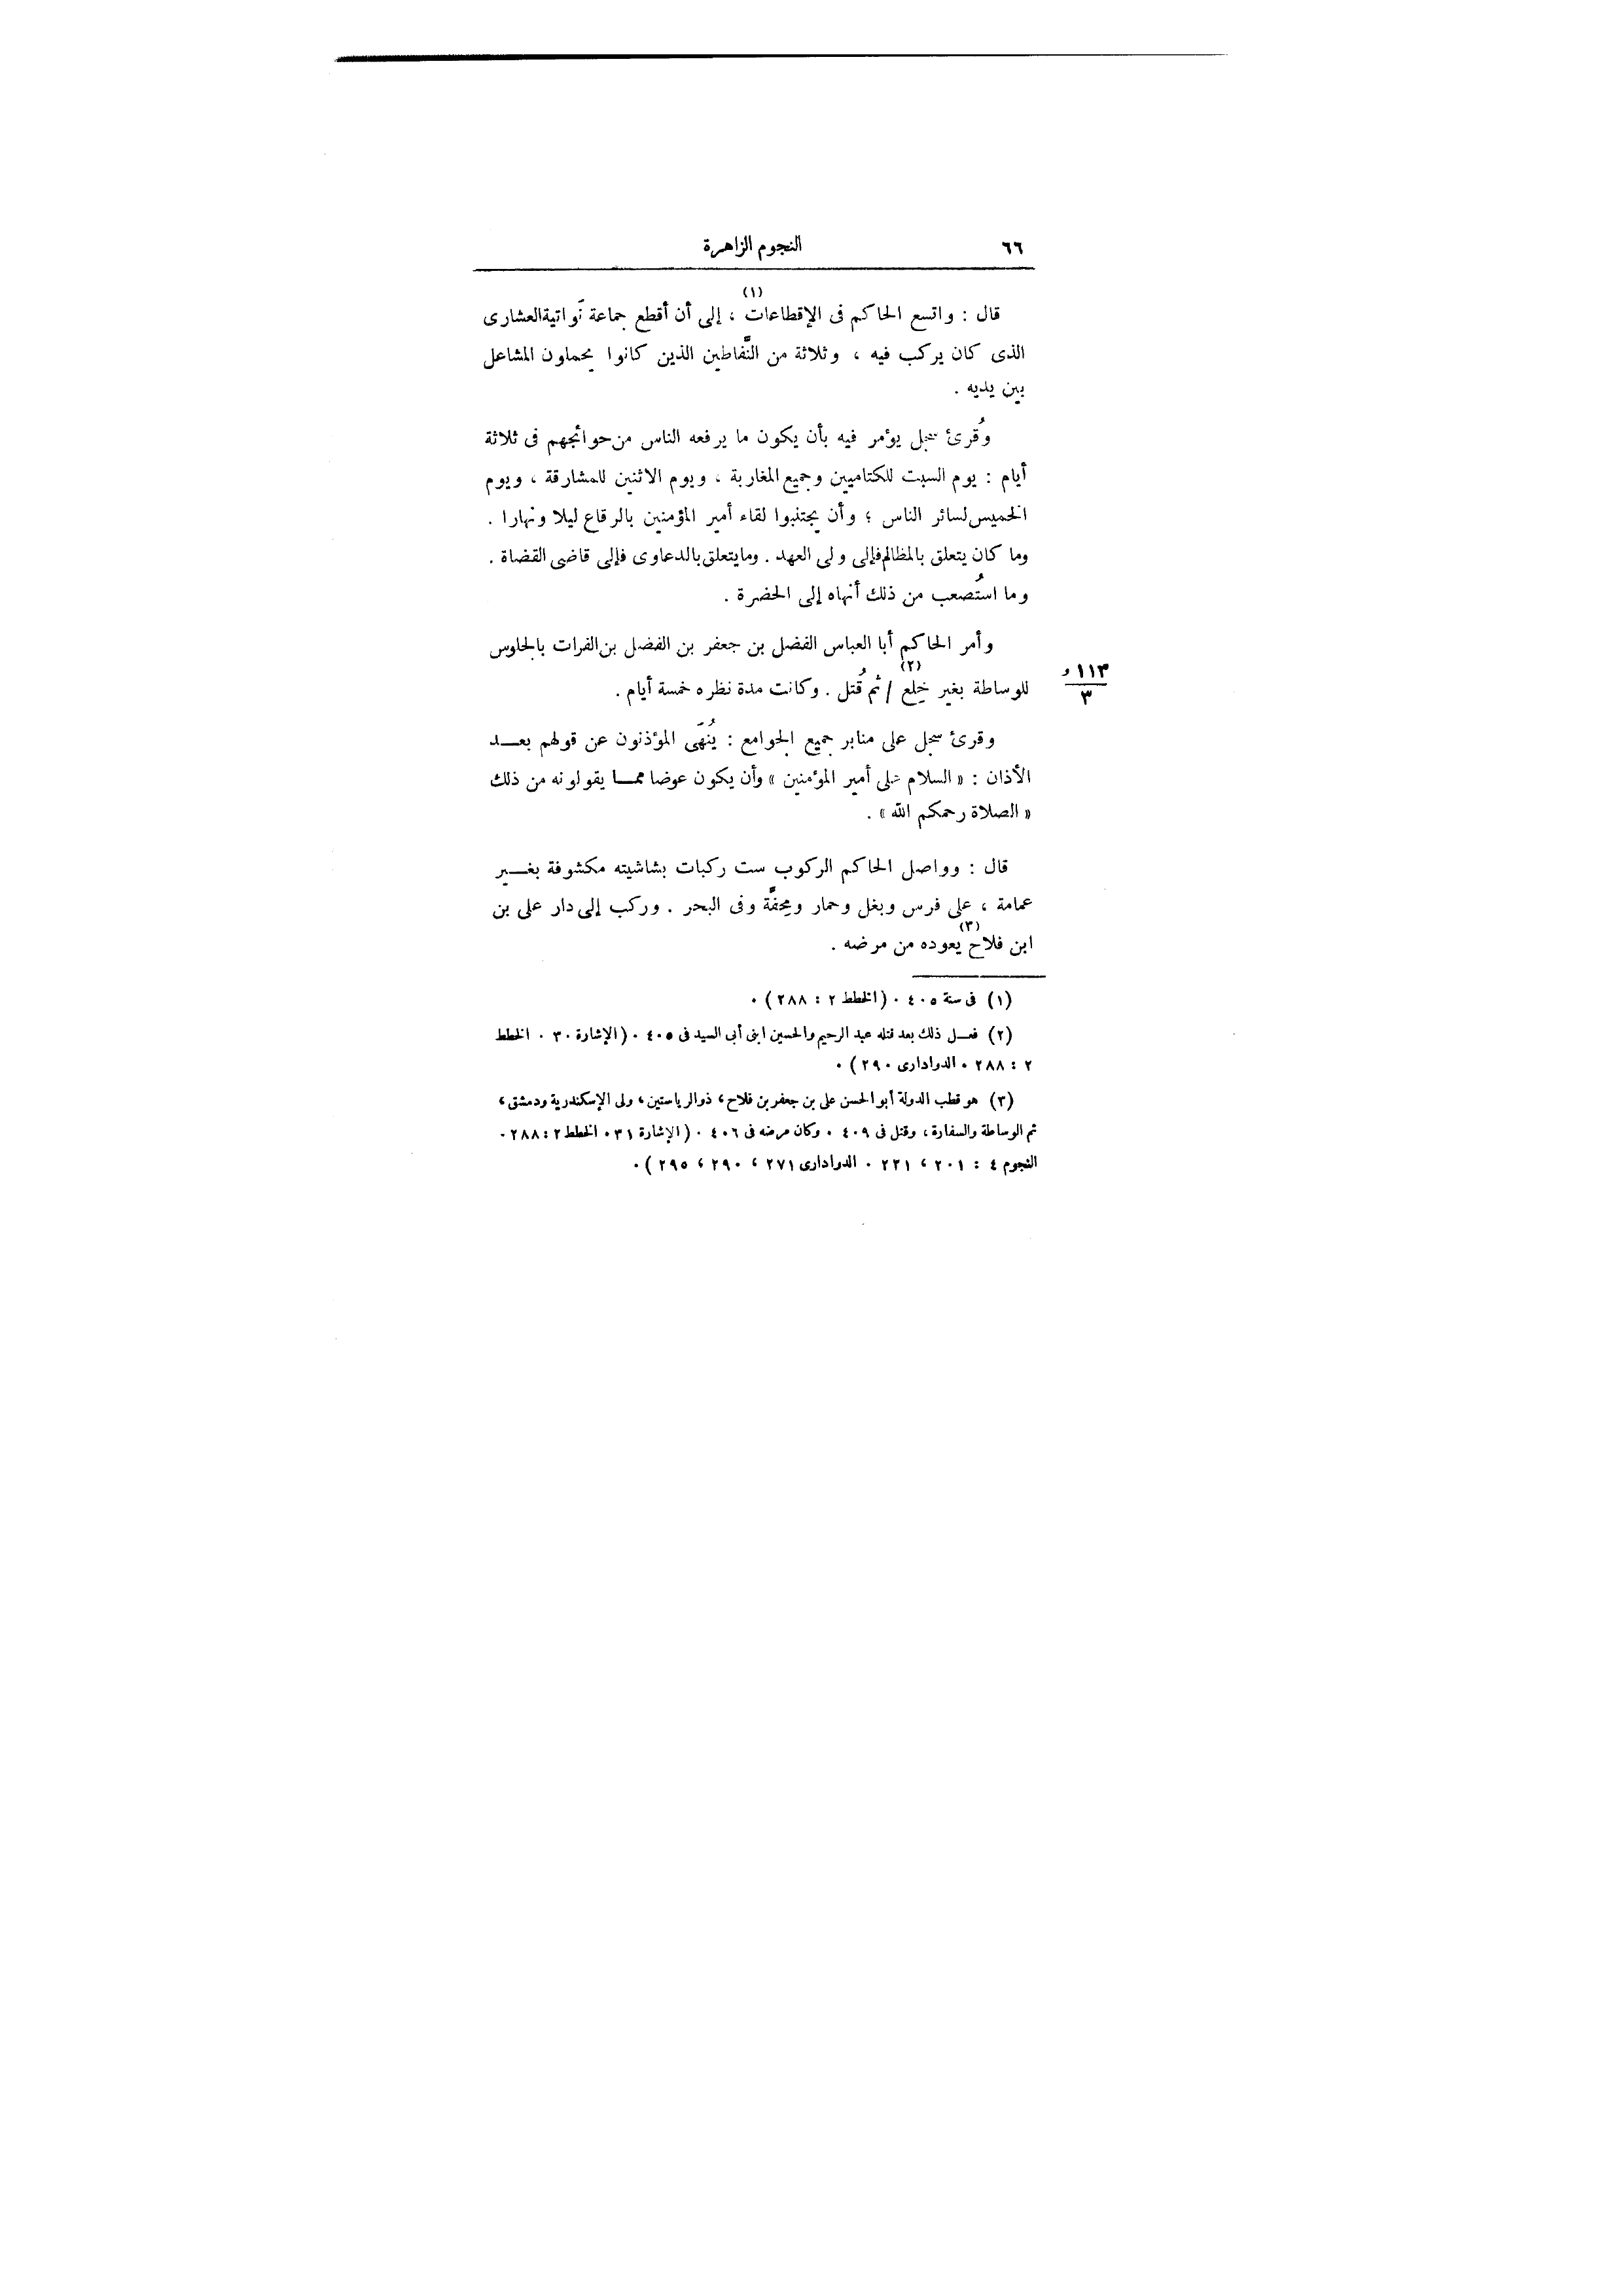 ٦٦ النجوم الزاهرة
قال : واتسع الحاكم فى الإقطاعات (١) ، إلى أن أقطع جماعة نَواتية العشارى
الذى كان يركب فيه ، وثلاثة من النَّفاطين الذين كانوا يحملون المشاعل
بين يديه .
وقُرئ سجل يؤمر فيه بأن يكون ما يرفعه الناس من حوائجهم فى ثلاثة
أيام : يوم السبت للكتاميين وجميع المغاربة ، ويوم الاثنين للمشارقة ، ويوم
الخميس لسائر الناس ؛ وأن يجتنبوا لقاء أمير المؤمنين بالرقاع ليلا ونهارا .
وما كان يتعلق بالمظالم فإلى ولى العهد . وما يتعلق بالدعاوى فإلى قاضى القضاة .
وما استُصعب من ذلك أنهاه إلى الحضرة .
وأمر الحاكم أبا العباس الفضل بن جعفر بن الفضل بن الفرات بالجلوس
للوساطة بغير خِلع (٢) / ثم قُتل . وكانت مدة نظره خمسة أيام .
١١٣ و
٣
وقرئ سجل على منابر جميع الجوامع : يُنهَى المؤذنون عن قولهم بعـــد
الأذان : « السلام على أمير المؤمنين » وأن يكون عوضا ممـــا يقولونه من ذلك
« الصلاة رحمكم الله » .
قال : وواصل الحاكم الركوب ست ركبات بشاشيته مكشوفة بغـــير
عمامة ، على فرس وبغل وحمار ومِحفَّة وفى البحر . وركب إلى دار على بن
ابن فلاح (٣) يعوده من مرضه .
(١) فى سنة ٤٠٥ . (الخطط ٢ : ٢٨٨) .
(٢) فعـــل ذلك بعد قتله عبد الرحيم والحسين ابنى أبى السيد فى ٤٠٥ . (الإشارة ٣٠ . الخطط
٢ : ٢٨٨ . الدوادارى ٢٩٠) .
(٣) هو قطب الدولة أبو الحسن على بن جعفر بن فلاح ، ذو الرياستين ، ولى الإسكندرية ودمشق ،
ثم الوساطة والسفارة ، وقتل فى ٤٠٩ . وكان مرضه فى ٤٠٦ . (الإشارة ٣١ . الخطط ٢ : ٢٨٨ .
النجوم ٤ : ٢٠١ ، ٢٢١ . الدوادارى ٢٧١ ، ٢٩٠ ، ٢٩٥) .